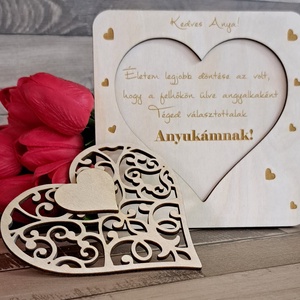 Kedves Anya!
Életem legjobb döntése az volt,
hogy a felhőkön ülve angyalkaként
Téged választottalak
Anyukámnak!